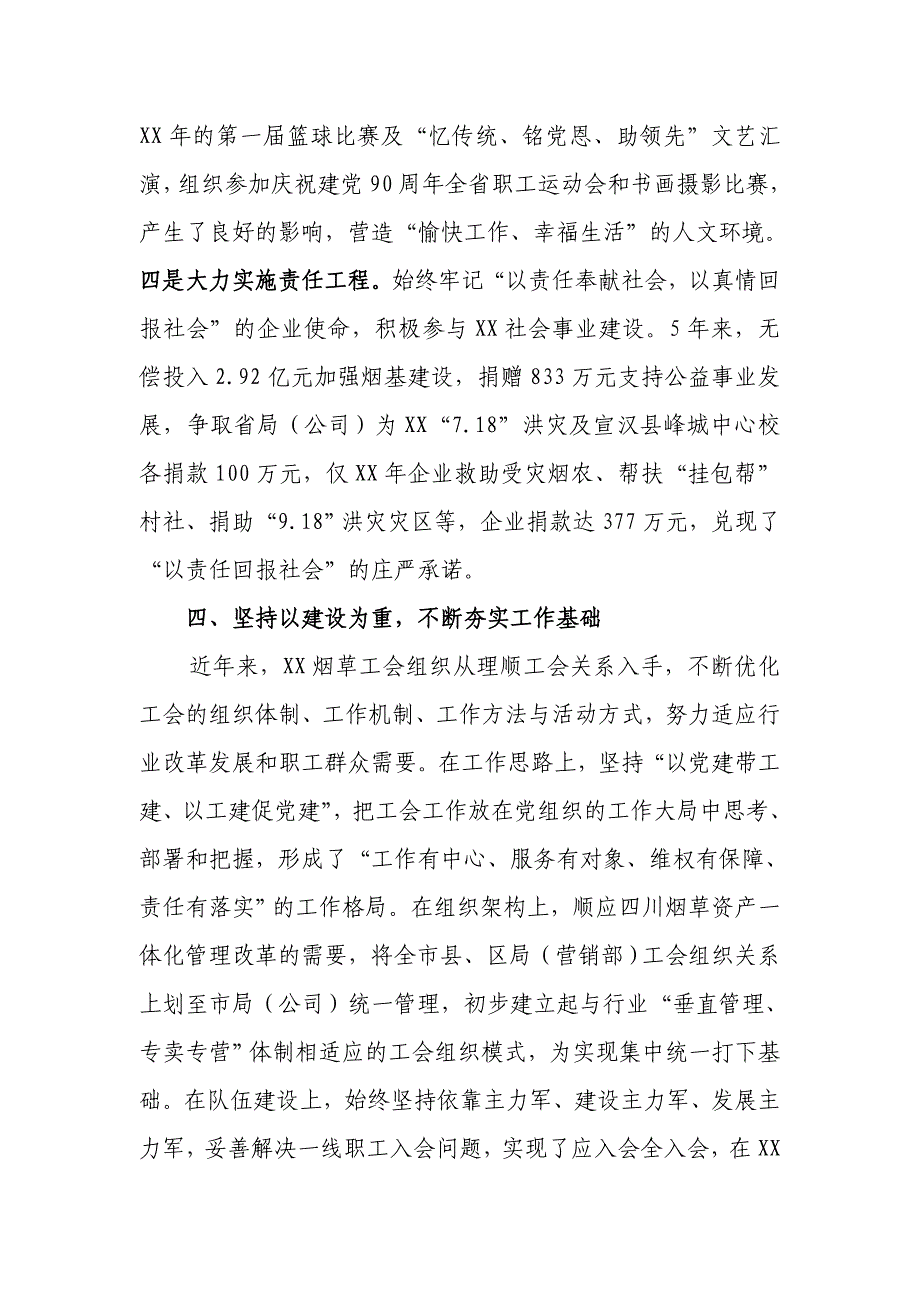 XX 年的第一届篮球比赛及“忆传统、铭党恩、助领先”文艺汇
演，组织参加庆祝建党 90 周年全省职工运动会和书画摄影比赛，
产生了良好的影响，营造“愉快工作、幸福生活”的人文环境。
四是大力实施责任工程。始终牢记“以责任奉献社会，以真情回
报社会”的企业使命，积极参与 XX 社会事业建设。5 年来，无
偿投入 2.92 亿元加强烟基建设，捐赠 833 万元支持公益事业发
展，争取省局（公司）为 XX“7.18”洪灾及宣汉县峰城中心校
各捐款 100 万元，仅 XX 年企业救助受灾烟农、帮扶“挂包帮”
村社、捐助“9.18”洪灾灾区等，企业捐款达 377 万元，兑现了
“以责任回报社会”的庄严承诺。
四、坚持以建设为重，不断夯实工作基础
近年来，XX 烟草工会组织从理顺工会关系入手，不断优化
工会的组织体制、工作机制、工作方法与活动方式，努力适应行
业改革发展和职工群众需要。在工作思路上，坚持“以党建带工
建、以工建促党建”，把工会工作放在党组织的工作大局中思考、
部署和把握，形成了“工作有中心、服务有对象、维权有保障、
责任有落实”的工作格局。在组织架构上，顺应四川烟草资产一
体化管理改革的需要，将全市县、区局（营销部）工会组织关系
上划至市局（公司）统一管理，初步建立起与行业“垂直管理、
专卖专营”体制相适应的工会组织模式，为实现集中统一打下基
础。在队伍建设上，始终坚持依靠主力军、建设主力军、发展主
力军，妥善解决一线职工入会问题，实现了应入会全入会，在 XX